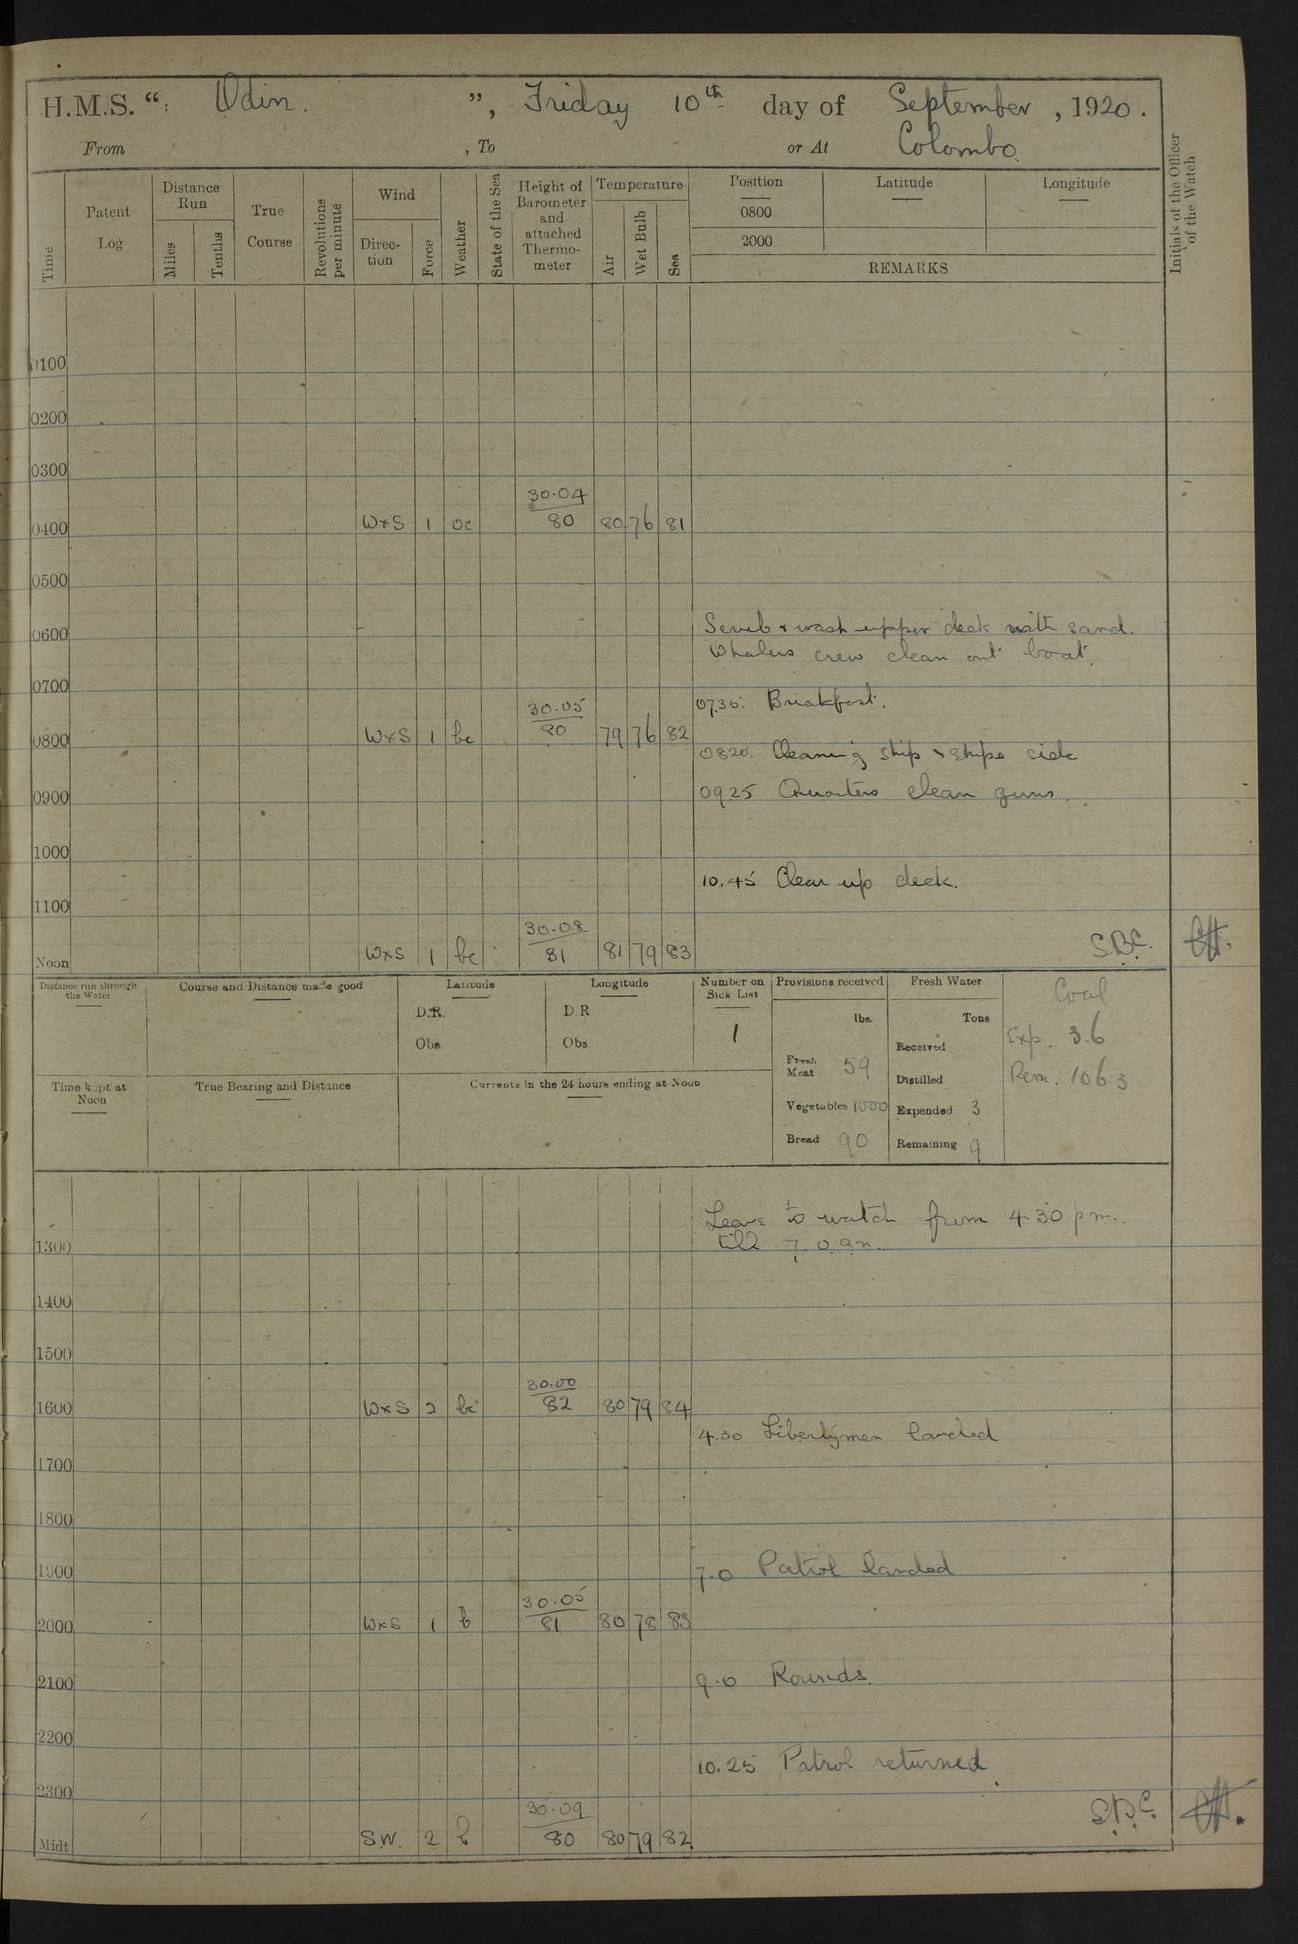 H.M.S. “ Odin. ”, Friday 10th day of September, 1920.
From , To or At Colombo.
Time
Patent Log
Distance Run
Miles
Tenths
True Course
Revolutions per minute
Wind
Direction
Force
Weather
State of the Sea
Height of Barometer and attached Thermometer
Temperature
Air
Wet Bulb
Sea
Position
Latitude
Longitude
0800
2000
REMARKS
Initials of the Officer of the Watch
0100
0200
0300
30.04
0400 W×S 1 oc 80 80 76 81
0500
0600 Scrub & wash upper deck with sand.
Whalers crew clean out boat.
0700
30.05 Breakfast.
0800 W×S 1 bc 80 79 76 82
0820. Cleaning ship & ships side
0900 0925 Quarters clean guns.
1000
10.45 Clear up deck.
1100
30.08
Noon W×S 1 bc 81 81 79 83 S.B.C.
Distance run through the Water
Course and Distance made good
Latitude
D.R.
Obs.
Longitude
D.R
Obs
Number on Sick List
1
Provisions received
lbs.
Fresh Meat 59
Vegetables 1000
Bread 90
Fresh Water
Tons
Received
Distilled
Expended 3
Remaining 9
Coal
Exp. 3.6
Rem. 106.3
Time kept at Noon
True Bearing and Distance
Currents in the 24 hours ending at Noon
Leave to watch from 4.30 pm.
1300 till 7.0 am.
1400
1500
30.00
1600 W×S 2 bc 82 80 79 84
4.30 Libertymen landed
1700
1800
1900 7.0 Patrol landed
30.05
2000 W×S 1 b 81 80 78 83
2100 9.0 Rounds.
2200
10.25 Patrol returned
2300
30.09
Midt S.W. 2 b 80 80 79 82 S.B.C.